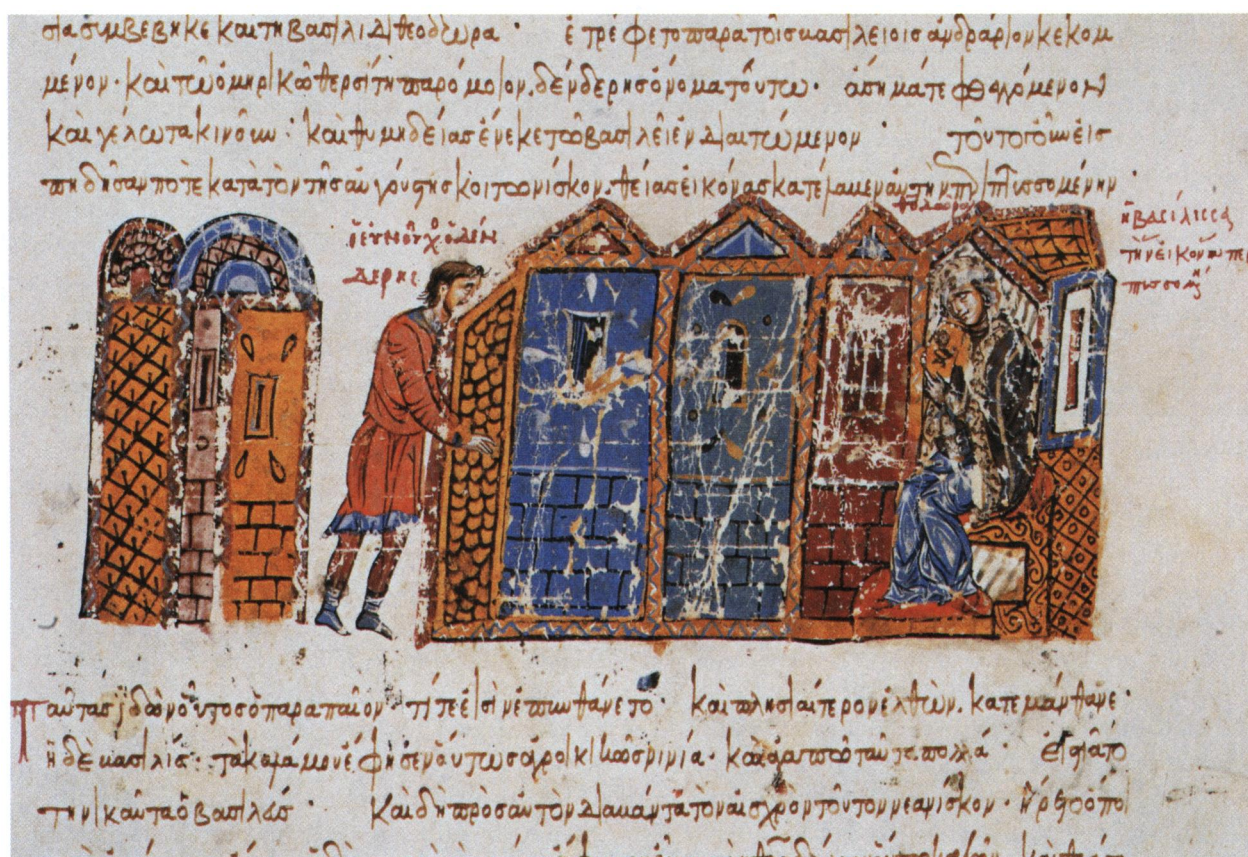 συμβέβηκε καὶ τῆ βασιλίδι θεοδώρα· ἐτρέφετο παρὰ τοῖς βασιλείοις ἀνδράριον κεκομ
μένον· καὶ τῶ ὁμηρικῶ θερσίτη παρόμοιον. δένδερης ὄνομα τούτω· ἄσημά τε φθεγγόμενον
καὶ γέλωτα κινοῦν· καὶ θυμηδείας ἕνεκε τῶ βασιλείω ἐνδιαιτώμενον· τοῦτο γοῦν εἰς
πηδῆσαν ποτε κατὰ τὸν τῆς αὐγούστης κοιτωνίσκον. θείας εἰκόνας αὐτὴν περιπτυσσομένην·
ὁ εὐνοῦχο δέν
δερης
ἡ βασίλισσα
τὴν εἰκόνα
ταύτας ἰδὼν οὗτος ὁ παραπαίον τί τε εἰσὶν ἐπυνθάνετο· καὶ πλησιαίτερον ἐλθὼν. κατεμάνθανε·
ἡ δὲ βασιλίς· τὰ καλά μου ἔφησεν οὕτως ἀγροικικῶς νινία· καὶ ἀγαπῶ ταῦτα πολλά·
τηνικαῦτα ὁ βασιλεύς· καὶ δὴ πρὸς αὐτὸν τὸν αἰσχρὸν τοῦτον νεανίσκον· ἤρετο ὅποι